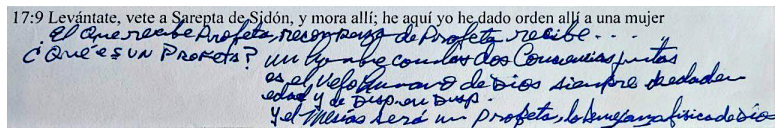 17:9 Levántate, vete a Sarepta de Sidón, y mora allí; he aquí yo he dado orden allí a una mujer
El que recibe Profeta, recompensa de Profeta recibe...
¿Qué es UN PROFETA? un hombre con las dos Consciencias juntas
es el Velo humano de Dios siempre de edad en
edad y de Disp. en Disp.
Y el Mesías será un Profeta, la semejanza física de Dio